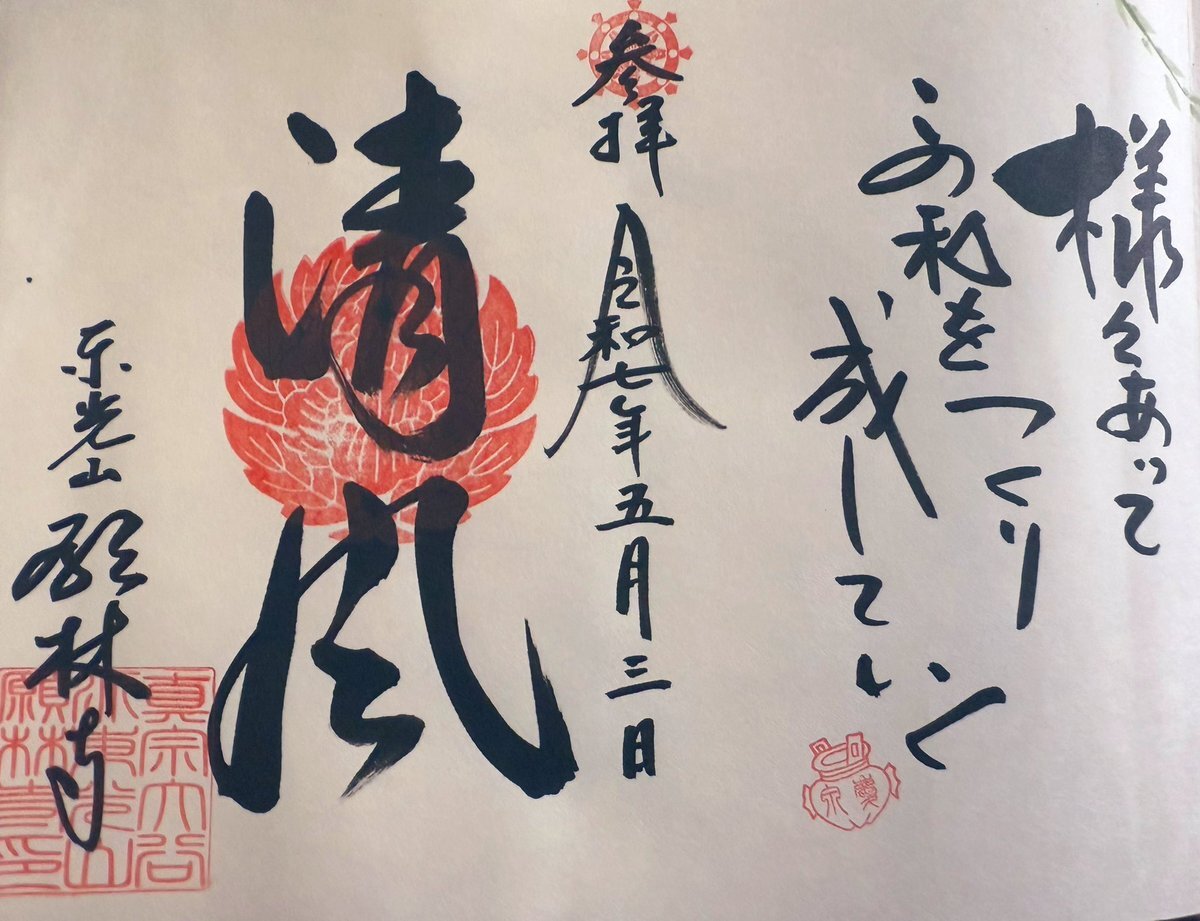 様々あって
この私をつくり
成していく
参拝
令和七年五月三日
清風
东光山 願林寺
真宗大谷
派東光山
願林寺印